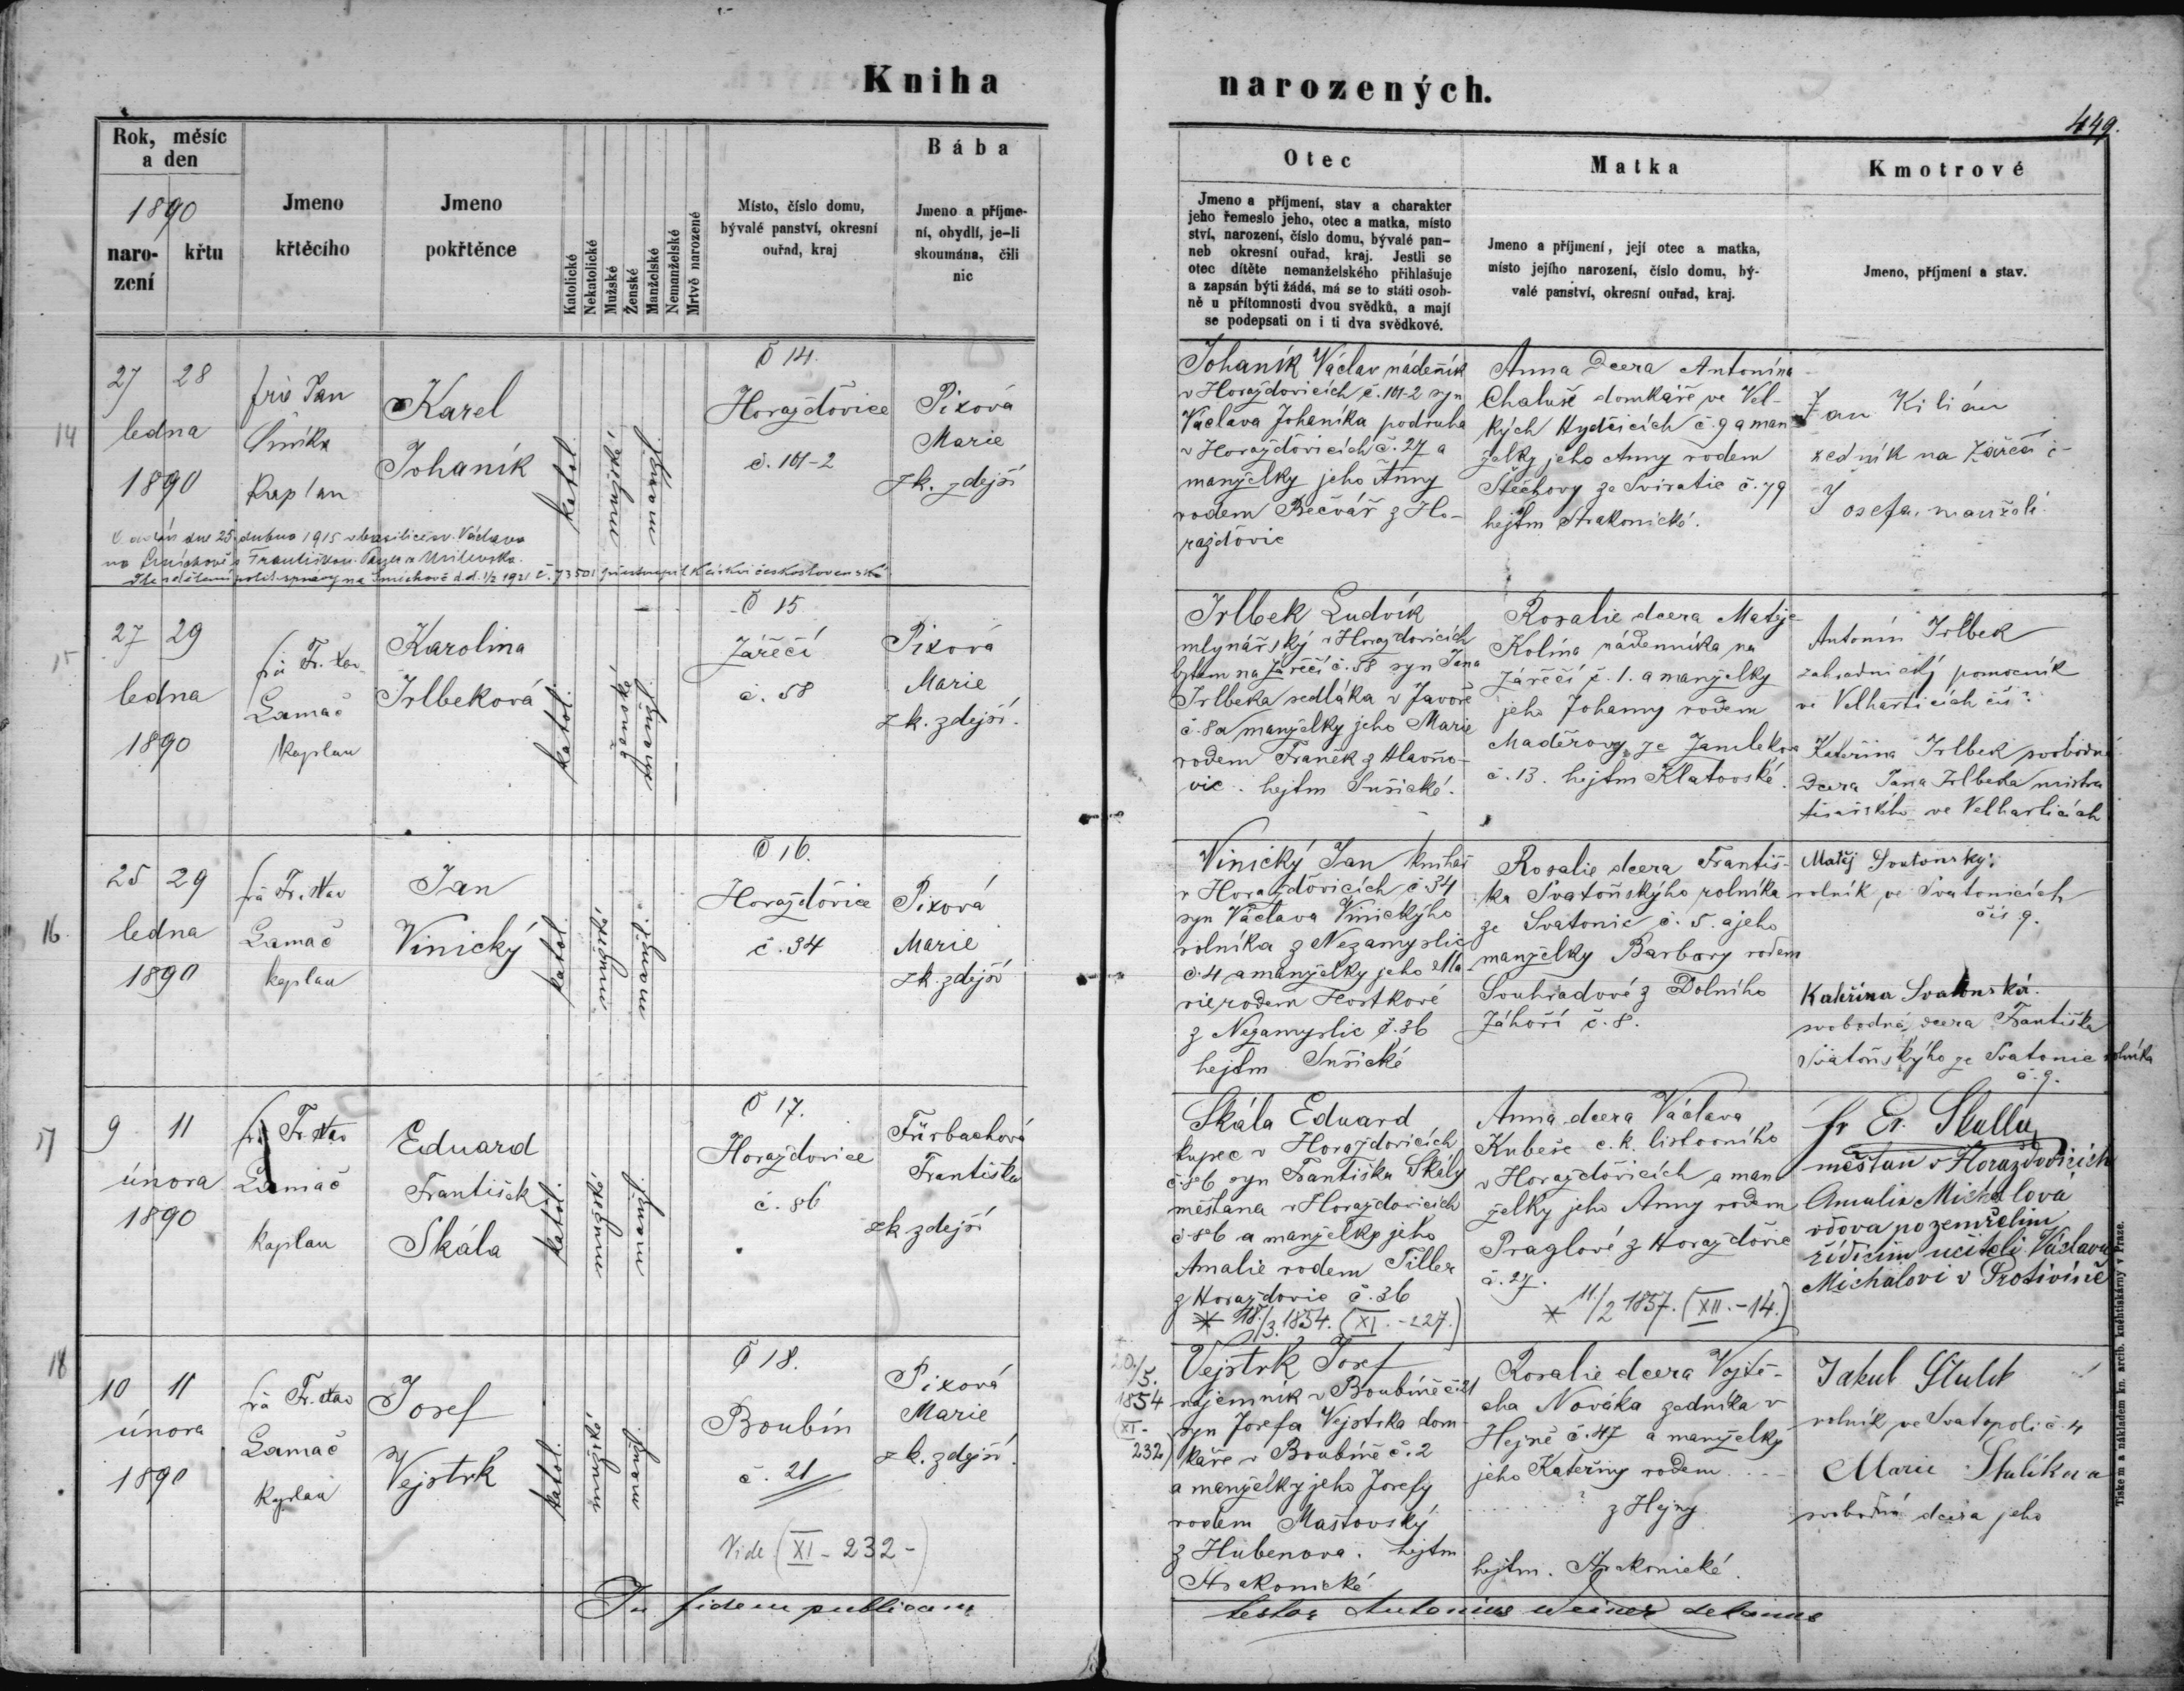 Kniha
narozených.
449.
Rok, měsíc
a den
1890
naro-
zení
křtu
Jmeno
křtěcího
Jmeno
pokřtěnce
Katolické
Nekatolické
Mužské
Ženské
Manželské
Nemanželské
Mrtvě narozené
Místo, číslo domu,
bývalé panství, okresní
ouřad, kraj
Bába
Jmeno a příjme-
ní, obydlí, je-li
skoumána, čili
nic
Otec
Jmeno a příjmení, stav a charakter
jeho řemeslo jeho, otec a matka, místo
ství, narození, číslo domu, bývalé pan-
neb okresní ouřad, kraj. Jestli se
otec dítěte nemanželského přihlašuje
a zapsán býti žádá, má se to státi osob-
ně u přítomnosti dvou svědků, a mají
se podepsati on i ti dva svědkové.
Matka
Jmeno a příjmení, její otec a matka,
místo jejího narození, číslo domu, bý-
valé panství, okresní ouřad, kraj.
Kmotrové
Jmeno, příjmení a stav.
14
27 28
ledna
1890
Jan
Kaplan
Karel
Johaník
katol.
mužské
manž.
Č 14.
Horažďovice
č. 101-2
Pixová
Marie
zk. zdejší
dne 25. dubna 1915 v basilice sv. Václava
na Smíchově s Františkou
na Smíchově d.d. 1/2 1921 č. 73501 přistoupil k církvi československé
Johaník Václav nádeník
v Horažďovicích č. 101-2 syn
Václava Johaníka podruha
v Horažďovicích č. 27 a
manželky jeho Anny
rodem Bečvář z Ho-
ražďovic
Anna dcera Antonína
Chaluše domkáře ve Vel-
kých Hydčicích č. 9 a man
želky jeho Anny rodem
Štěchovy ze Sviratic č. 79
hejtm Strakonické.
Jan Kilián
zedník na Zářečí č-
Josefa, manželé
15
27 29
ledna
1890
Fr. Xav
Lamač
kaplan
Karolina
Irlbeková
katol.
ženské
manž.
Č 15
Zářečí
č. 58
Pixová
Marie
zk. zdejší.
Irlbek Ludvík
mlynářský v Horažďovicích
bytem na Zářečí č. 58 syn Jana
Irlbeka sedláka v Javoře
č. 8 a manželky jeho Marie
rodem Franěk z Hlavňo-
vic. hejtm Sušické.
Rosalie dcera Matěje
Kolína nádenníka na
Zářečí č. 1. a manželky
jeho Johanny rodem
Maděrovy ze Zamlekova
č. 13. hejtm Klatovské.
Antonín Irlbek
zahradnický pomocník
ve Velharticích čís?
Kateřina Irlbek svobodná
dcera Jana Irlbeka mistra
tesařského ve Velharticích
16.
25 29
ledna
1890
Fr. Xav
Lamač
kaplan
Jan
Vinický
katol.
mužské
manž.
Č 16.
Horažďovice
č. 34
Pixová
Marie
zk. zdejší
Vinický Jan knihař
v Horažďovicích č 34
syn Václava Vinického
rolníka z Nezamyslic
č. 4 a manželky jeho Ma-
rie rodem Hostkové
z Nezamyslic č. 36
hejtm Sušické
Rosalie dcera Františ-
ka Svatoňského rolníka
ze Svatonic č. 5. a jeho
manželky Barbory rodem
Souhradové z Dolního
Záhoří č. 8.
Matěj Svatonský
rolník ve Svatonicích
čís 9.
Kateřina Svatonská.
svobodná, dcera Františka
Svatoňskýho ze Svatonic rolníka
č. 9.
17
9 11
února
1890
Fr. Xav
Lamač
kaplan
Eduard
František
Skála
katol.
mužské
manž.
Č 17.
Horažďovice
č. 86
Fürbachová
Františka
zk zdejší
Skála Eduard
kupec v Horažďovicích
č. 86 syn Františka Skály
měšťana v Horažďovicích
č. 86 a manželky jeho
Amalie rodem Tiller
z Horažďovic č. 36
* 18/3. 1854. (XI. - 227.)
Anna dcera Václava
Kubeše c. k. listovního
v Horažďovicích a man
želky jeho Anny rodem
Praglové z Horažďovic
č. 27.
* 11./2 1857. (XII. - 14.)
měšťan v Horažďovicích
Amalie Michalová
vdova po zemřelím
řídícím učiteli Václavu
Michalovi v Protivíně
18
10 11
února
1890
Fr. Xav
Lamač
kaplan
Josef
Vejstrk
katol.
mužské
manž.
Č 18.
Boubín
č. 21
Vide (XI - 232 -)
Pixová
Marie
zk. zdejší.
20./5.
1854
(XI -
232)
Vejstrk Josef
nájemník v Boubíně č. 21
syn Josefa Vejstrka dom
káře v Boubíně č. 2
a manželky jeho Josefy
rodem Mašťovský
z Hubenova. hejtm
Strakonické
Rosalie dcera Vojtě-
cha Nováka zedníka v
Hejné č. 47 a manželky
jeho Kateřiny rodem ...
? z Hejny
hejtm. Strakonické.
Jakub Stulík
rolník ve Svatopoli č. 4
Marie Stulíkova
svobodná dcera jeho
In fidem publicam
testor Antonius Weiner decanus
Tiskem a nákladem kn. arcib. kněhtiskárny v Praze.